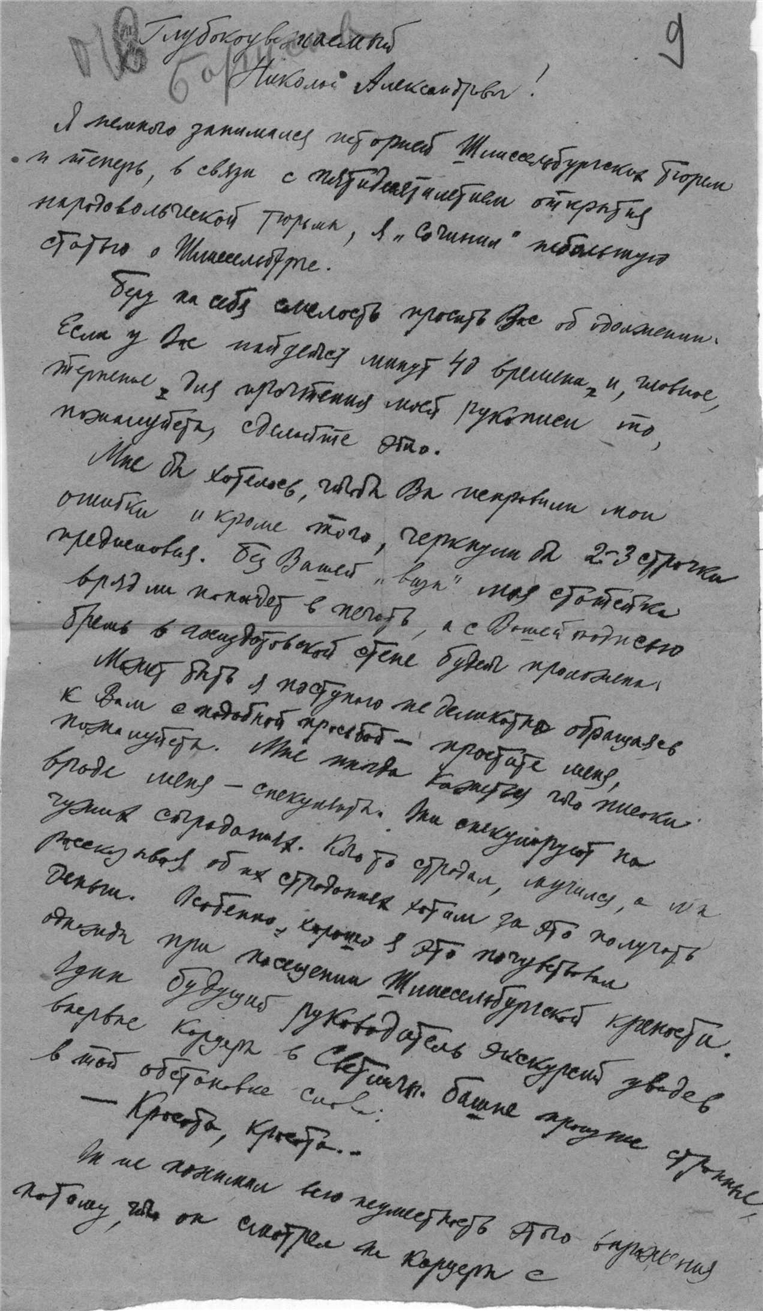 9
Глубокоуважаемый
Николай Александрович!
Я немного занимался историей Шлиссельбургских тюрем
и теперь, в связи с пятидесятилетием открытия
народовольческой тюрьмы, я „сочинил" небольшую
статью о Шлиссельбурге.
Беру на себя смелость просить Вас об одолжении.
Если у Вас найдется минут 40 времени, и, главное,
терпенье, для прочтения моей рукописи то,
пожалуйста, сделайте это.
Мне бы хотелось, чтобы Вы исправили мои
ошибки и кроме того, черкнули бы 2-3 строчки
предисловия. Без Вашей „визы" моя статейка
врядли попадет в печать, а с Вашей подписью
брешь в государевской стене будет проложена.
Может быть я поступаю не деликатно обращаясь
к Вам с подобной просьбой — простите меня,
пожалуйста. Мне иногда кажется что писаки
вроде меня — спекулянты. Они спекулируют на
чужих страданиях. Кто то страдал, мучился, а мы
рассказывая об их страданиях хотим за это получать
деньги. Особенно, хорошо я это почувствовал
однажды при посещении Шлиссельбургской крепости.
Один будущий руководитель экскурсий увидев
впервые карцеры в Светличн. башне произнес странные,
в той обстановке слова:
— Красота, красота...
Он не понимал всю неуместность этого выражения
потому, что он смотрел на карцеры с